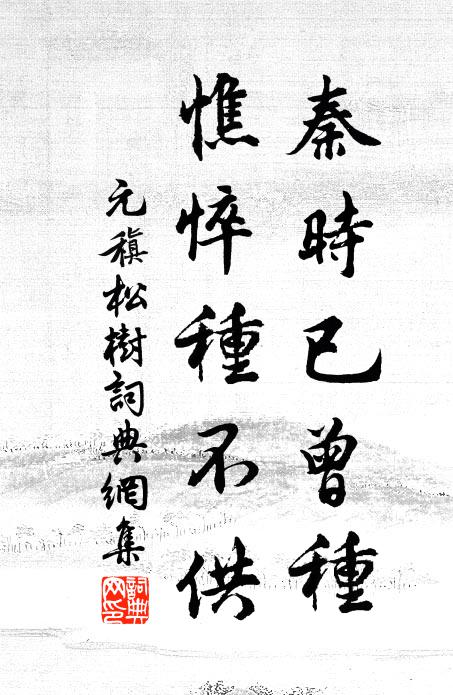 秦時已曾種
憔悴種不供
元稹松樹詞典網集